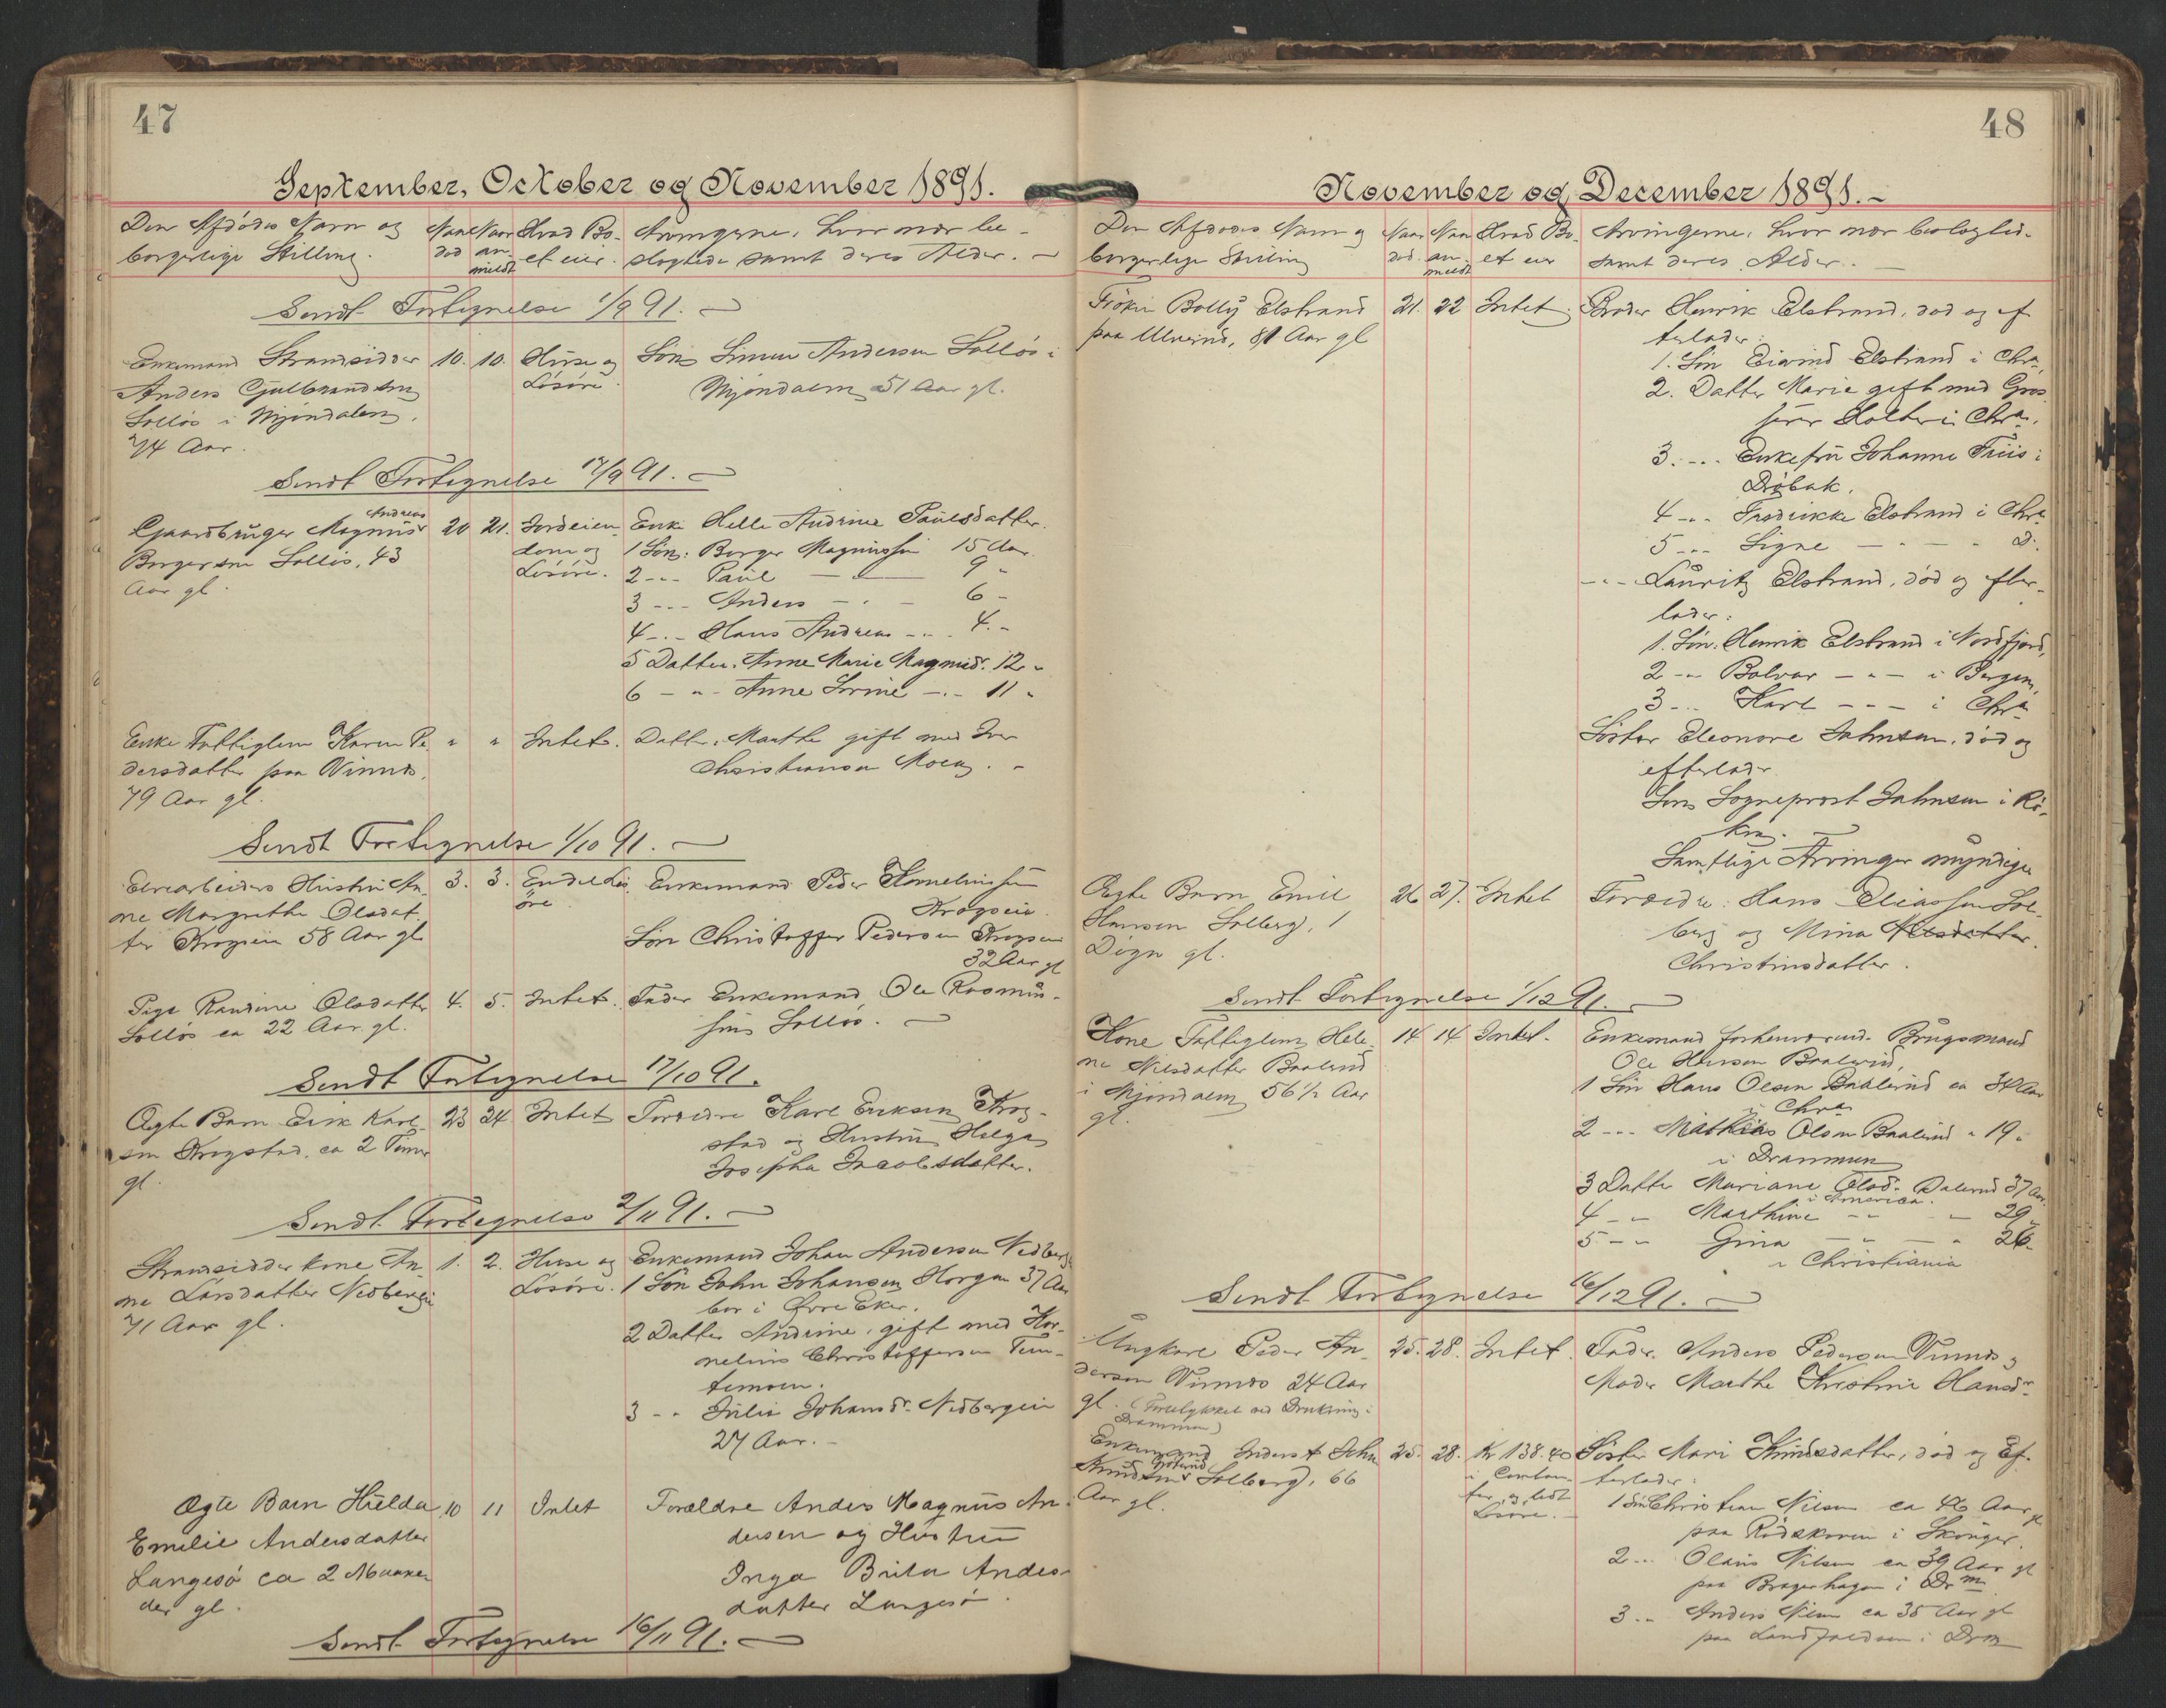 47
September, October og November 1891.
Den Afdødes Navn og borgerlige Stilling.
Naar død
Naar anmeldt
Hvad Boet eier.
Arvingerne, hvor nær beslægtede samt deres Alder. —
Sendt Fortegnelse 1/9 91. —
Enkemand Strandsidder
Anders Gulbrandsen
Solløs i Mjøndalen,
74 Aar.
10. 10.
Huse og
Løsøre.
Søn Simen Andersen Solløs i
Mjøndalen 51 Aar gl.
Sendt Fortegnelse 17/9 91. —
Andreas
Gaardbruger Magnus
Borgersen Solløs, 43
Aar gl.
20 21.
Jordeien
dom og
Løsøre.
Enke Helle Andrine Paulsdatter.
1 Søn: Borger Magnussen 15 Aar.
2 -- Paul — 9 "
3 --- Anders — 6 -
4 -.- Hans Andreas -.. 4. -
5 Datter. Anne Marie Magnusd. 12 "
6 - " - Anne Sorine -.- 11 "
Enke Fattiglem Karen Pe
dersdatter paa Vinnes,
79 Aar gl.
" "
Intet.
Datter. Marthe gift med Iver
Christiansen Moen. -
Sendt Fortegnelse 1/10 91. —
Elvearbeiders Hustru An
ne Margrethe Olsdat
ter Krogseie 58 Aar gl
3. 3.
Endel Løs
øre
Enkemand Peder Kornelinssen
Krogseie.
Søn Christoffer Pedersen Krogseie
32 Aar gl
Pige Randine Olsdatter
Solløs ca 22 Aar gl.
4. 5.
Intet.
Fader Enkemand Ole Rasmus-
sen Solløs. —
Sendt Fortegnelse 17/10 91.
Ægte Barn Erik Karl-
sen Krogstad, ca 2 Timer
gl.
23 24
Intet
Forældre Karl Eriksen Krog-
stad og Hustru Helga
Josepha Jacobsdatter.
Sendt Fortegnelse 2/11 91. —
Strandsidderkone An
ne Larsdatter Nedbergeie
71 Aar gl.
1. 2.
Huse og
Løsøre.
Enkemand Johan Andersen Nedberge
1 Søn John Johansen Horgen 37 Aar
bor i Øvre Eker.
2 Datter Andrine, gift med Kor-
nelius Christoffersen Tem-
temoen.
3 -- Julie Johansdr. Nedbergeie
27 Aar. -
Ægte Barn Hulda
Emelie Andersdatter
Langesø ca 2 Maane
der gl.
10 11
Intet
Forældre Anders Magnus An
dersen og Hustru
Inga Brita Anders
datter Langesø.
Sendt Fortegnelse 16/11 91. —
48
November og December 1891. -
Den Afdødes Navn og
borgerlige Stilling
Naar død.
Naar anmeldt
Hvad Bo-
et eier
Arvingerne, hvor nær beslægted-
samt deres Alder. —
Frøken Bolly Elstrand
paa Ulverud, 81 Aar gl
21. 22
Intet
Broder Henrik Elstrand, død og ef
terlader:
1. Søn Eivind Elstrand i Chra,
2. Datter Marie gift med Gros
serer Holter i Chra.
3. -.. Enkefru Johanne Friis i
Drøbak.
4 -.. Fredrikke Elstrand i Chra
5 -.. Signe — " — D.
-.- Lauritz Elstrand, død og efter-
lader:
1. Søn. Henrik Elstrand i Nordfjord,
2 -- Bolvar - " - i Bergen,
3 -.. Karl - - - i Chra
Søster Eleonore Jahnsen, død og
efterlader
Søn Sogneprost Jahnsen i Rø-
ken. —
Samtlige Arvinger myndige
Ægte Barn Emil
Hansen Solberg, 1
Døgn gl.
26 27.
Intet
Forældre: Hans Eliassen Sol-
berg og Mina Nilsdatter.
Christinsdatter.
Sendt Fortegnelse 1/12 91. —
Kone Fattiglem Hele-
ne Nilsdatter Baalerud
i Mjøndalen 56 1/2 Aar
gl.
14 14
Intet.
Enkemand forhenværende Brugsmand
Ole Hansen Baalerud,
1 Søn Hans Olsen Baalerud ca 34 Aar
i Chra
2 --- Mathias Olsen Baalerud " 19 "
i Drammen
3 Datter Mariane Olsd. Balerud 37 Aar.
i America.
4 -- Marthine -- — 29
5 -- Gina — " 26
i Christiania
Sendt Fortegnelse 16/12 91. —
Ungkarl Peder An-
dersen Vinnes 24 Aar
gl. (Forulykket ved Drukning i
Drammen)
25. 28.
Intet.
Fader. Anders Pedersen Vinnes og
Moder Marthe Kristine Hansdr.
Enkemand Inderst John
Knudsen Solberg, 66
Aar gl.
25. 28.
Kr 138.40
i Contan
ter og lidt
Løsøre. —
Søster Mari Knudsdatter, død og Ef-
terlader:
1 Søn Christian Nilsen ca 46 Aar gl
paa Rødskoven i Skouger.
2 -.. Olaus Nilsen ca 39 Aar gl
paa Bragerhagen i Drm
3 .. Anders Nilsen ca 35 Aar gl
paa Landfaldøen i Drm